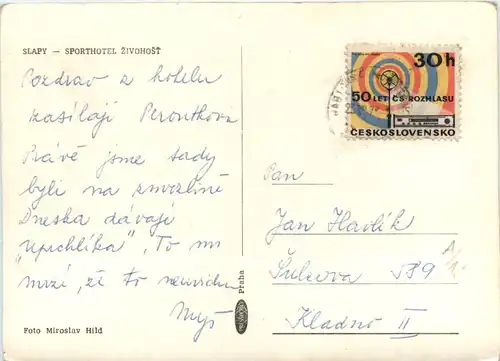 SLAPY — SPORTHOTEL ŽIVOHOŠŤ
Pozdrav z hotelu
zasílají Peroutkovi
Právě jsme tady
byli na zmrzlině
Dneska dávají
"Upechlíka". To mi
mrzí, že to neuvidím
Foto Miroslav Hild
Praha
30h
50 LET ČS. ROZHLASU
ČESKOSLOVENSKO
Pan
Jan Havlík
Šulcova 589
Kladno II